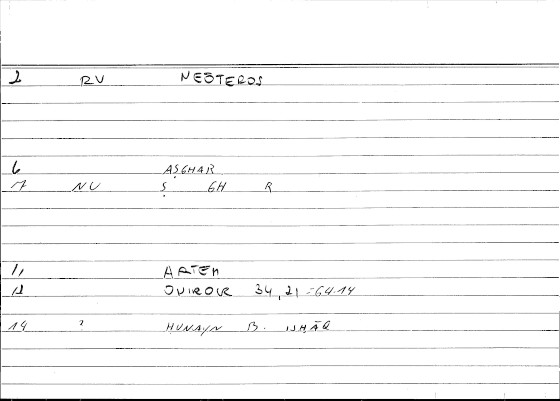 2 RV NESTEROS
6 AṢGHAR
7 NU Ṣ GH R
11 ARTEM
12 34,21 = 64.14
14 ? HUNAYN B. ISHĀQ